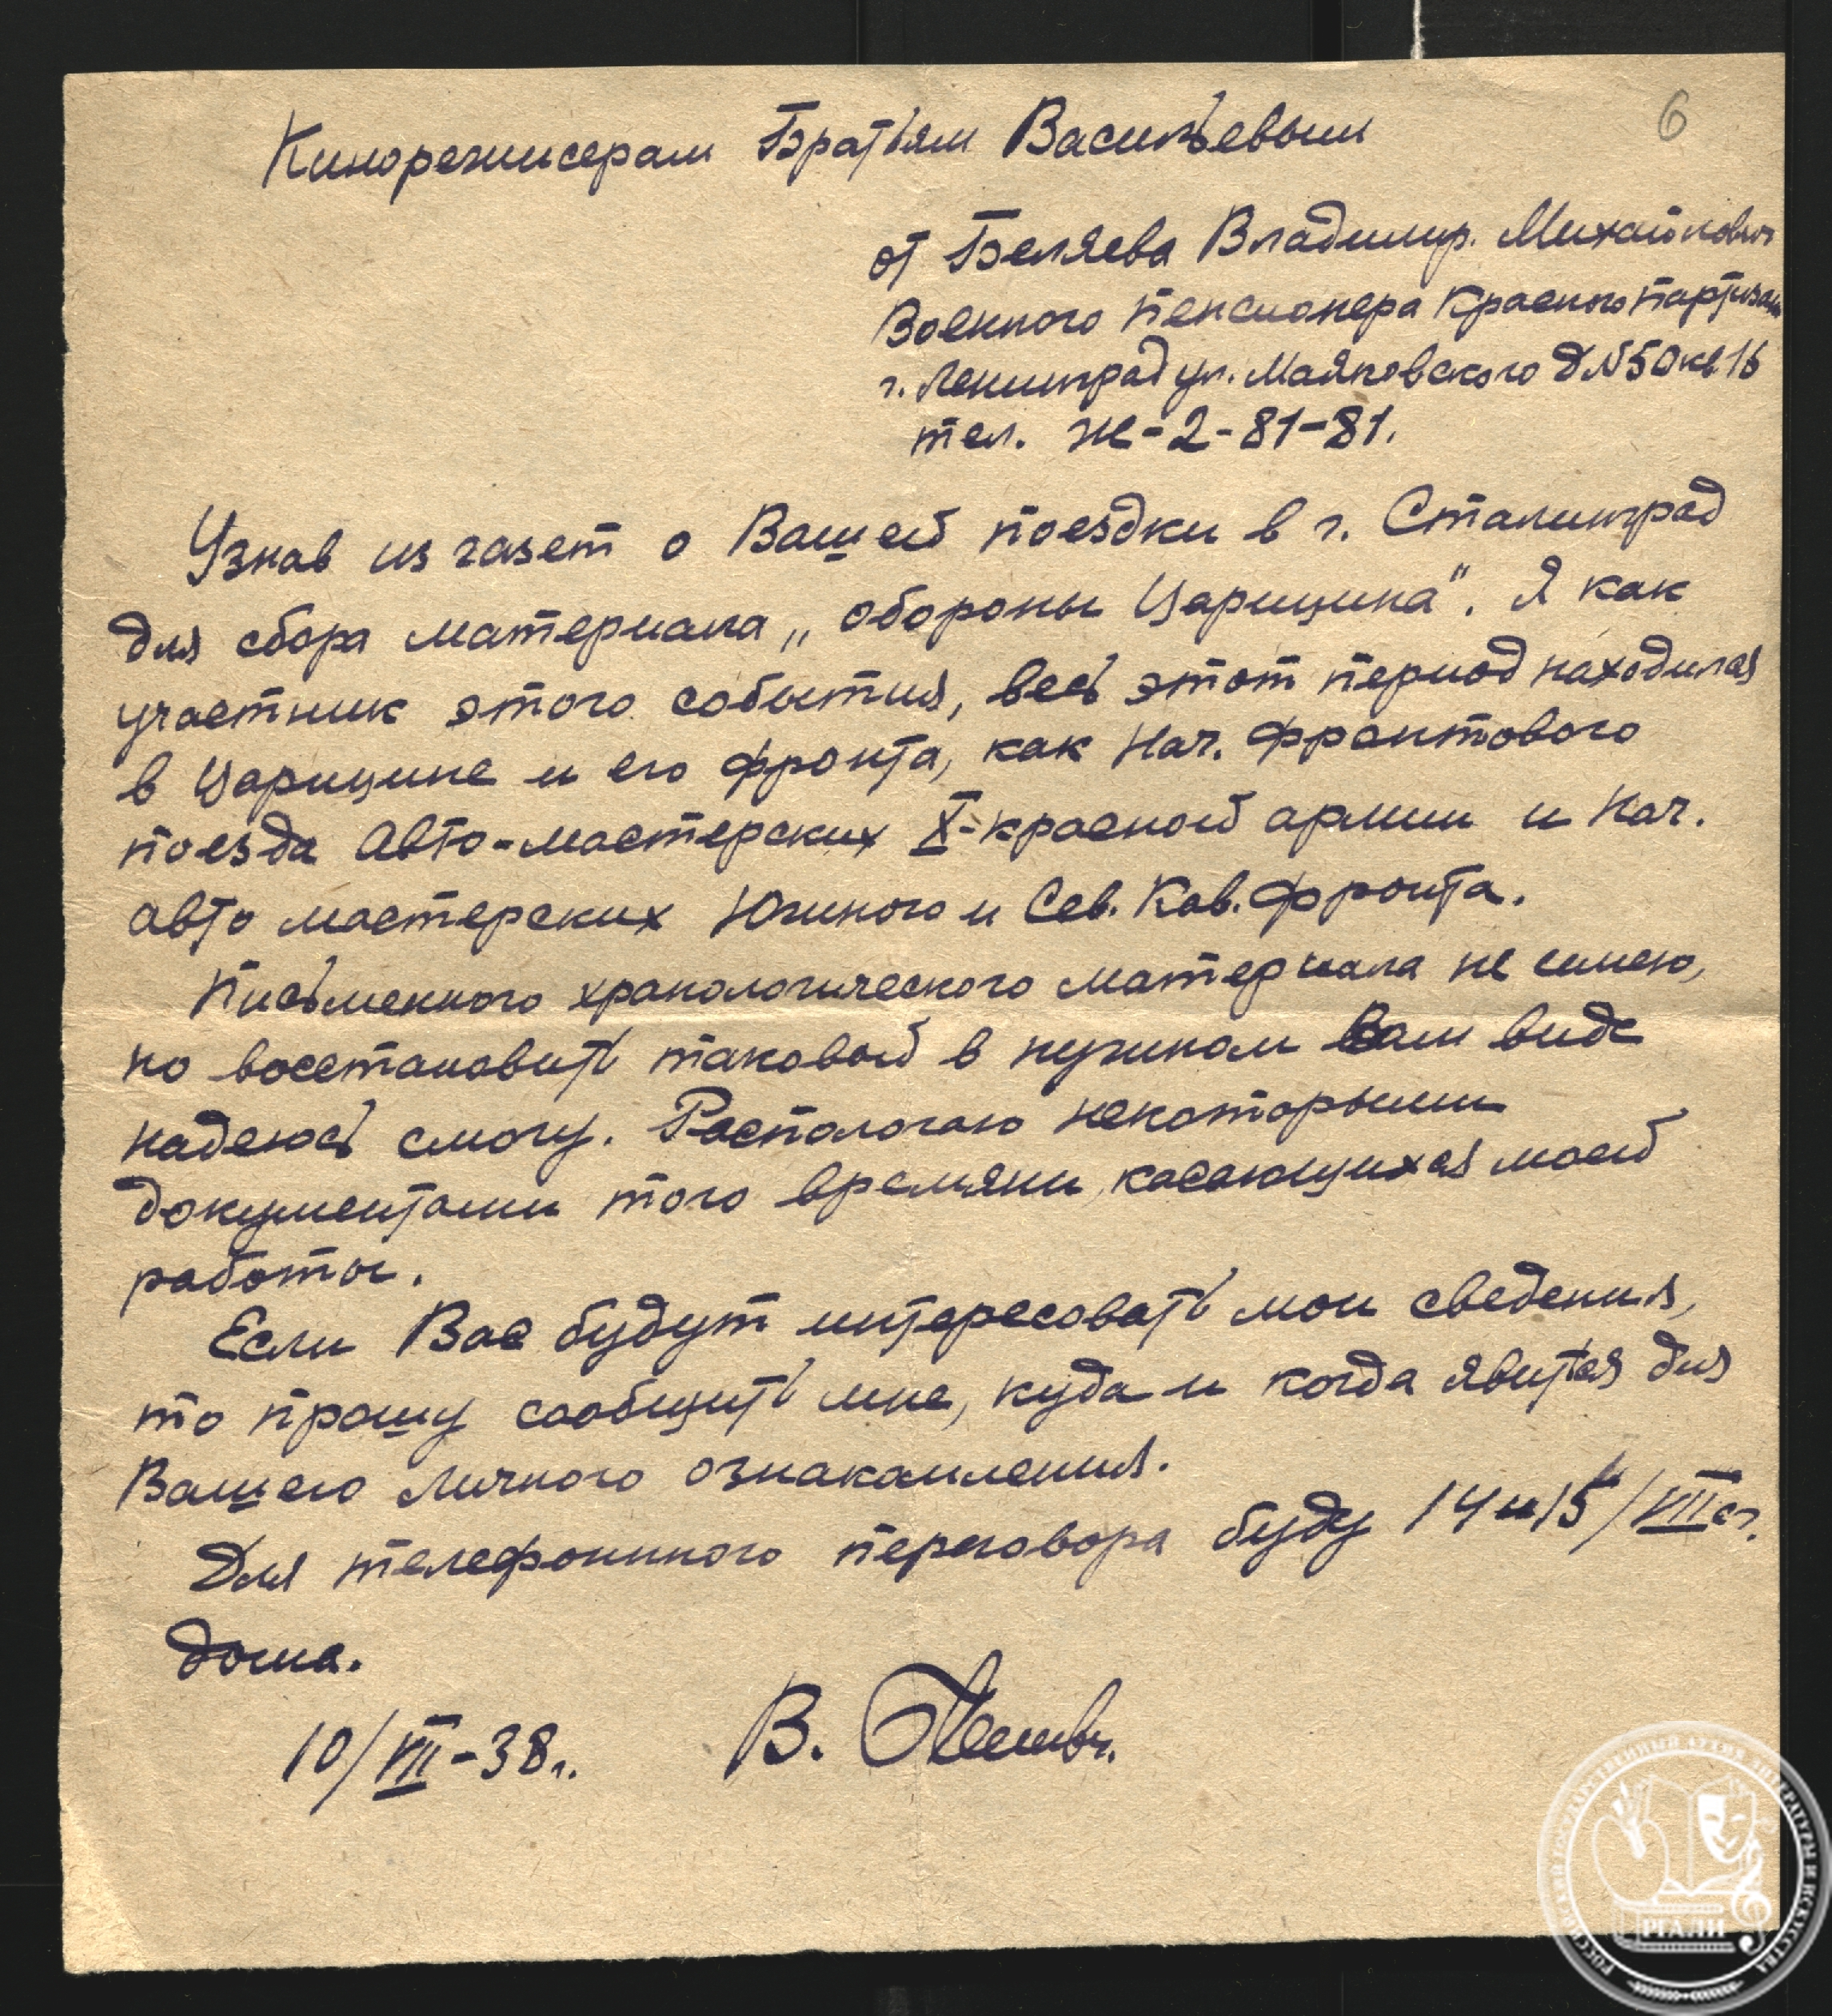 6
Кинорежисерам Братьям Васильевым
от Беляева Владимир. Михайлович
Военного пенсионера Красного партизан
г. Ленинград ул. Маяковского д N 50 кв 16
тел. Ж-2-81-81.
Узнав из газет о Вашей поездки в г. Сталинград
для сбора материала „обороны Царицина". Я как
участник этого события, весь этот период находился
в Царицине и его фронта, как Нач. фронтового
поезда Авто-мастерских X-красной армии и Нач.
авто мастерских Южного и Сев. Кав. фронта.
Письменного хранологического материала не имею,
но восстановить таковой в нужном Вам виде
надеюсь смогу. Распологаю некоторыми
документами того времяни, касающихся моей
работы.
Если Вас будут интересовать мои сведения,
то прошу сообщить мне, куда и когда явится для
Вашего личного ознакамления.
Для телефонного переговора буду 14 и 15/VIII с г.
дома.
10/VIII-38 г. В.
РОССИЙСКИЙ ГОСУДАРСТВЕННЫЙ АРХИВ ЛИТЕРАТУРЫ И ИСКУССТВА
РГАЛИ